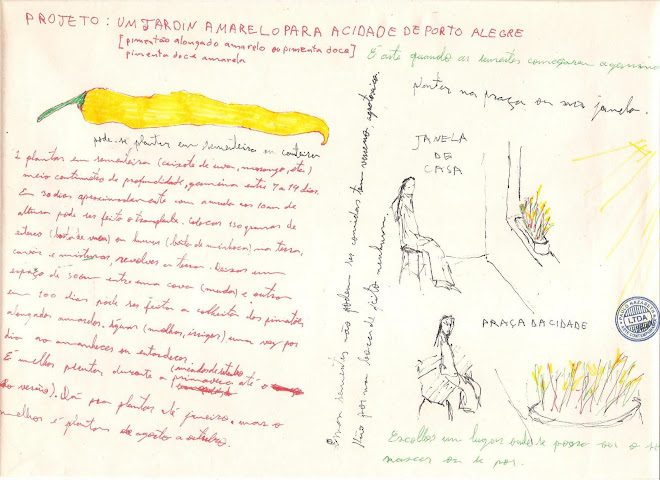 PROJETO: UM JARDIN AMARELO PARA A CIDADE DE PORTO ALEGRE
[pimentão alongado amarelo ou pimenta doce]
pimenta doce amarela
É arte quando as sementes começarem a germinar
plantar na praça ou sua janela.
pode-se plantar em sementeira ou canteiro
plantas em sementeira (caixote de uva, morango, etc)
meio centímetro de profundidade, germina entre 7 a 14 dias.
Em 30 dias aproximadamente com a muda aos 10cm de
altura pode ser feito o transplante. Colocar 130 gramas de
esterco (bosta de vaca) ou humus (bosta de minhoca) na terra,
cavar e misturar, revolver a terra. Deixar um
espaço de 50cm entre uma cova (muda) e outra
em 100 dias pode ser feita a colheita dos pimentões
alongados amarelos. Aguar (molhar, irrigar) uma vez por
dia ao amanhecer ou entardecer.
É melhor plantar durante a primavera até o
(meiados de
do verão). Dá pra plantar até janeiro, mas o
melhor é plantar de agosto a outubro.
Essas sementes não podem ser comidas tem veneno agrotóxico.
Não por na boca de jeito nenhum.
JANELA
DE
CASA
PRAÇA DA CIDADE
LTDA
Escolher um lugar onde se possa ver o sol
nascer ou se por.